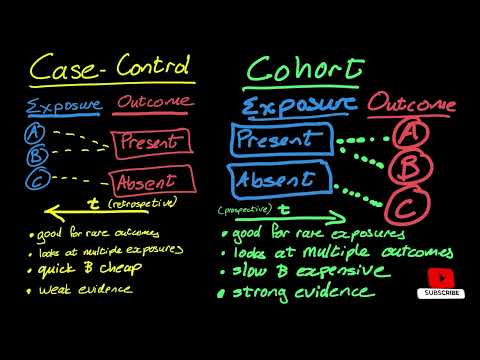 Case-Control
Exposure Outcome
A
B
C
Present
Absent
t (retrospective)
• good for rare outcomes
• looks at multiple exposures
• quick & cheap
• weak evidence
Cohort
Exposure Outcome
Present
Absent
A
B
C
(prospective) t
• good for rare exposures
• looks at multiple outcomes
• slow & expensive
• strong evidence
SUBSCRIBE